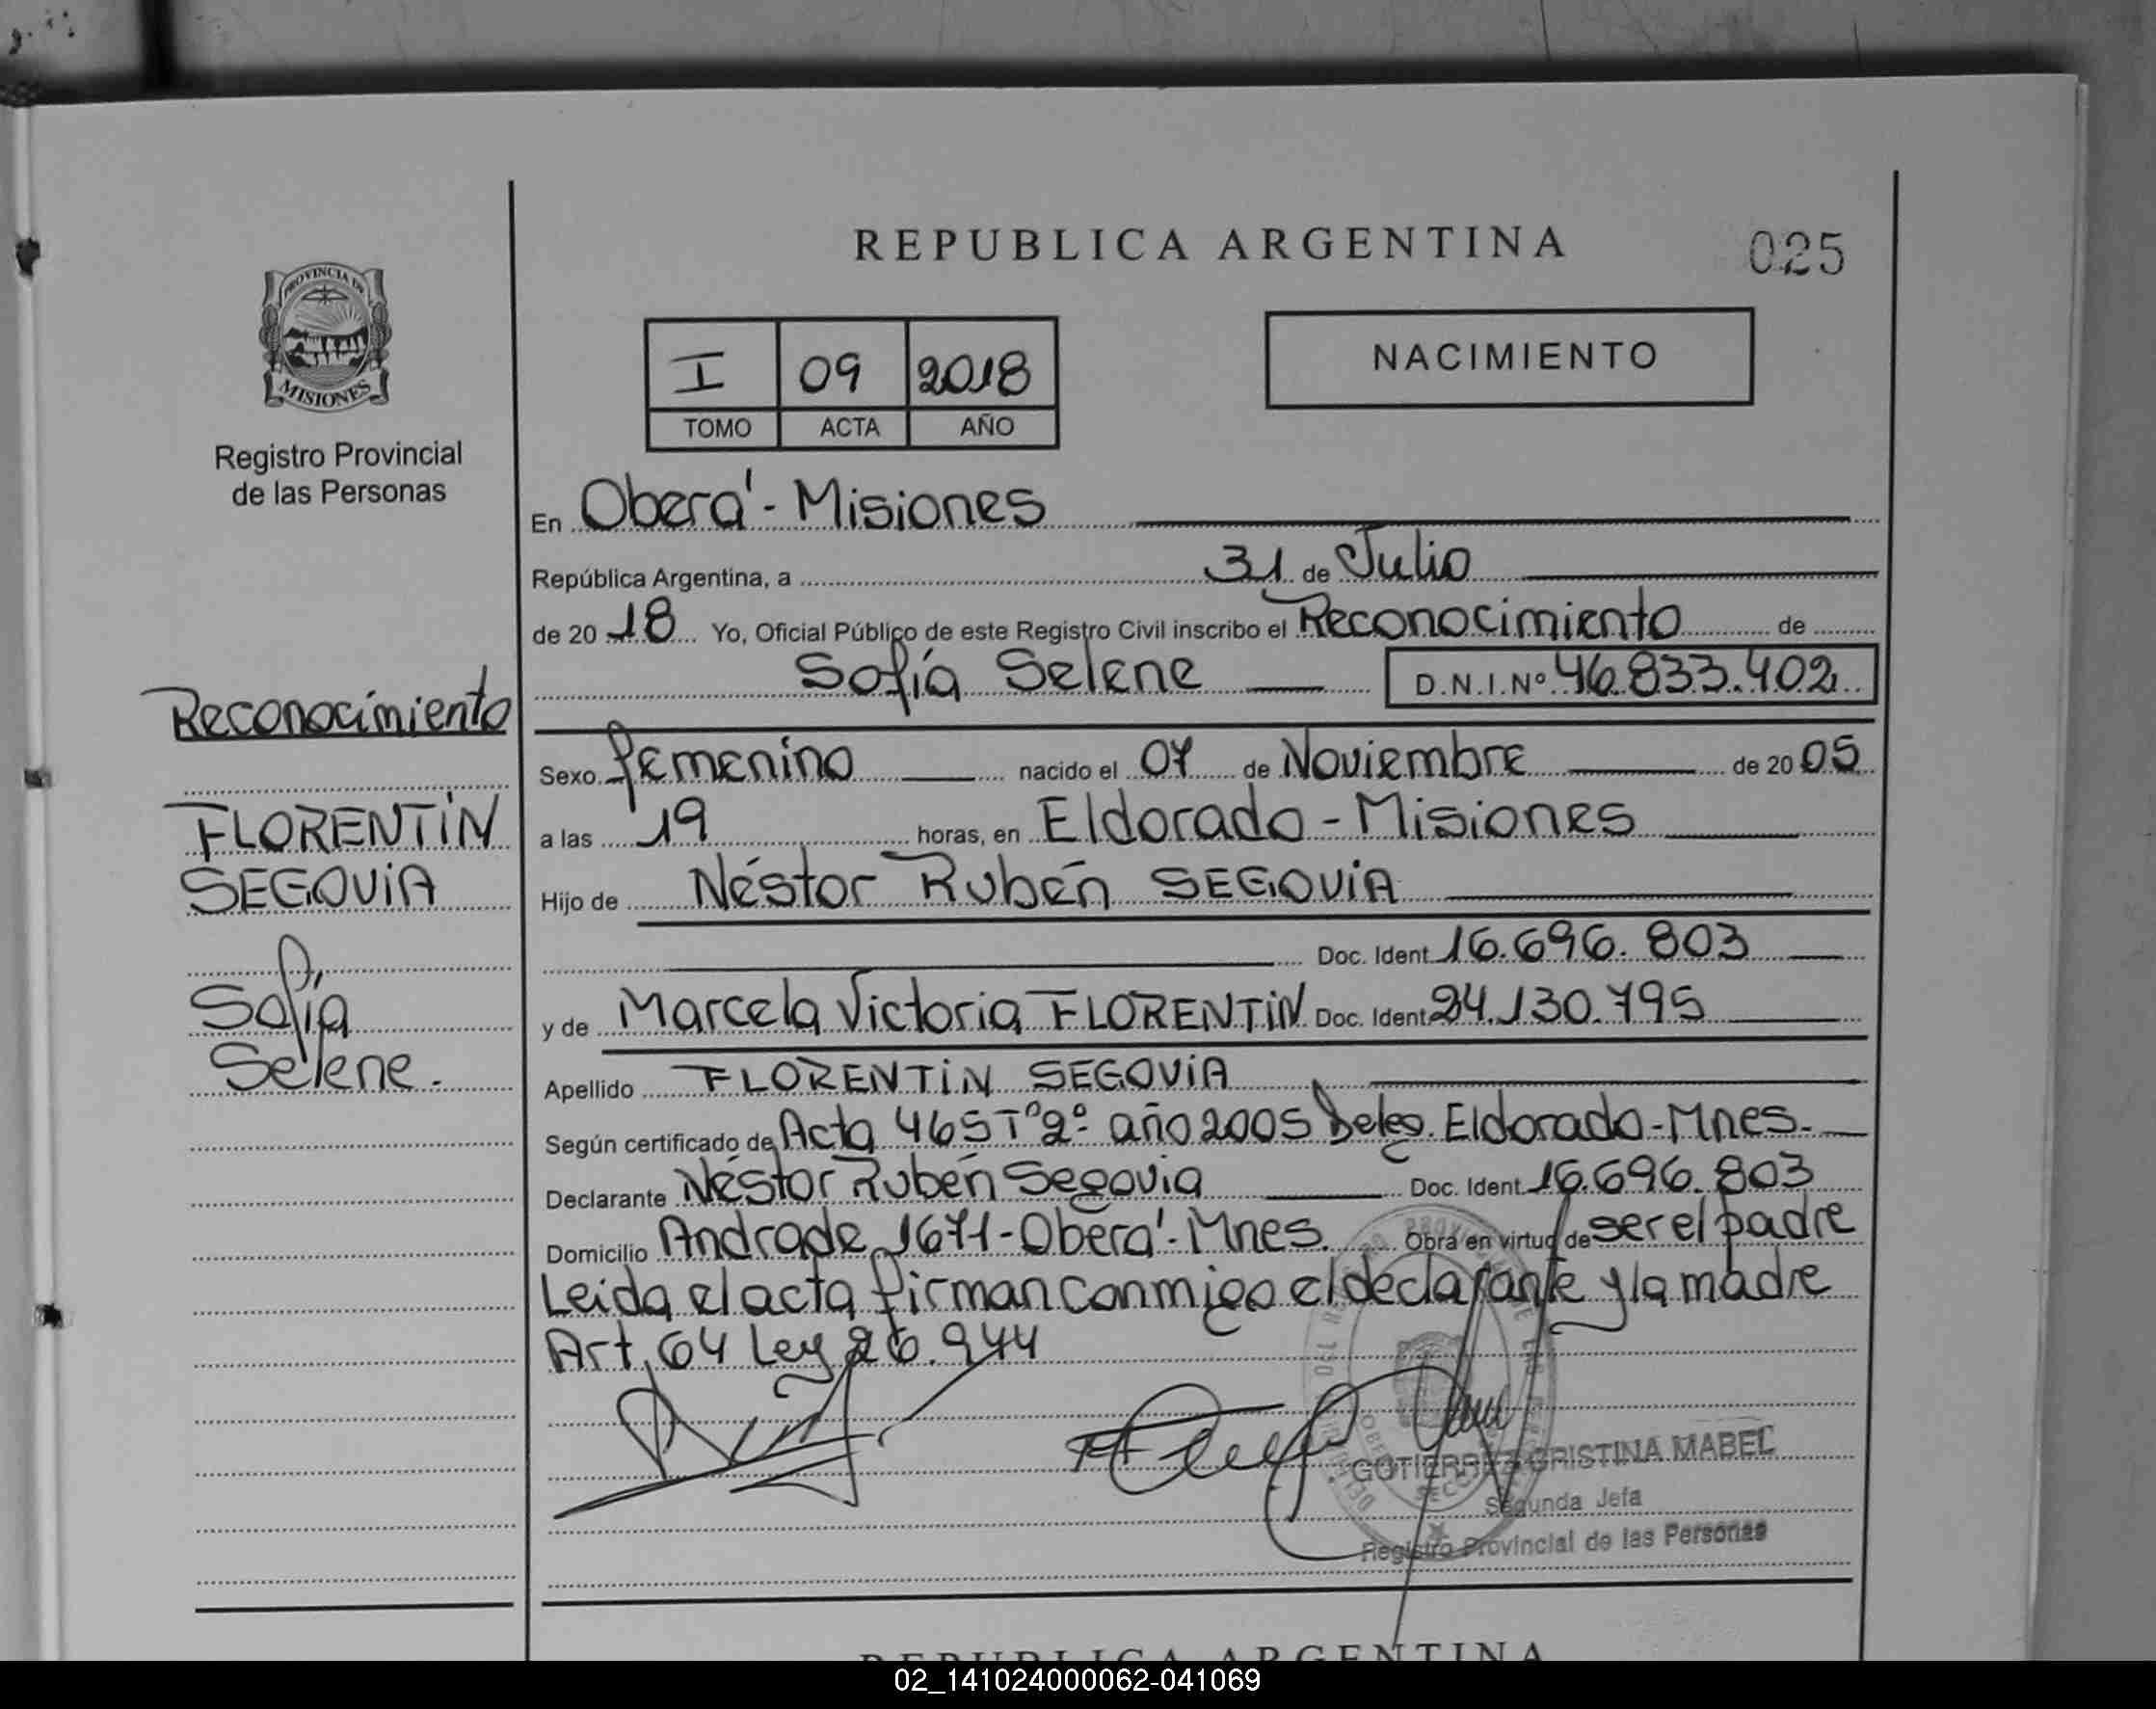 REPUBLICA ARGENTINA
025
PROVINCIA DE
MISIONES
Registro Provincial
de las Personas
I 09 2018
TOMO ACTA AÑO
NACIMIENTO
En Oberá - Misiones
República Argentina, a 31 de Julio
de 20 18 Yo, Oficial Público de este Registro Civil inscribo el Reconocimiento de
Sofía Selene D.N.I.Nº 46.833.402
Reconocimiento
FLORENTIN
SEGOVIA
Sofía
Selene.
Sexo femenino nacido el 07 de Noviembre de 20 05
a las 19 horas, en Eldorado - Misiones
Hijo de Néstor Rubén SEGOVIA
Doc. Ident. 16.696.803
y de Marcela Victoria FLORENTIN Doc. Ident. 24.130.795
Apellido FLORENTIN SEGOVIA
Según certificado de Acta 465 Tº 2º año 2005 Deleg. Eldorado - Mnes.
Declarante Néstor Rubén Segovia Doc. Ident. 16.696.803
Domicilio Andrade 1671 - Oberá - Mnes. Obra en virtud de ser el padre
Leida el acta firman conmigo el declarante y la madre
Art. 64 Ley 26.944
GOTIERREZ CRISTINA MABEL
Segunda Jefa
Registro Provincial de las Personas
REPUBLICA ARGENTINA
02_141024000062-041069